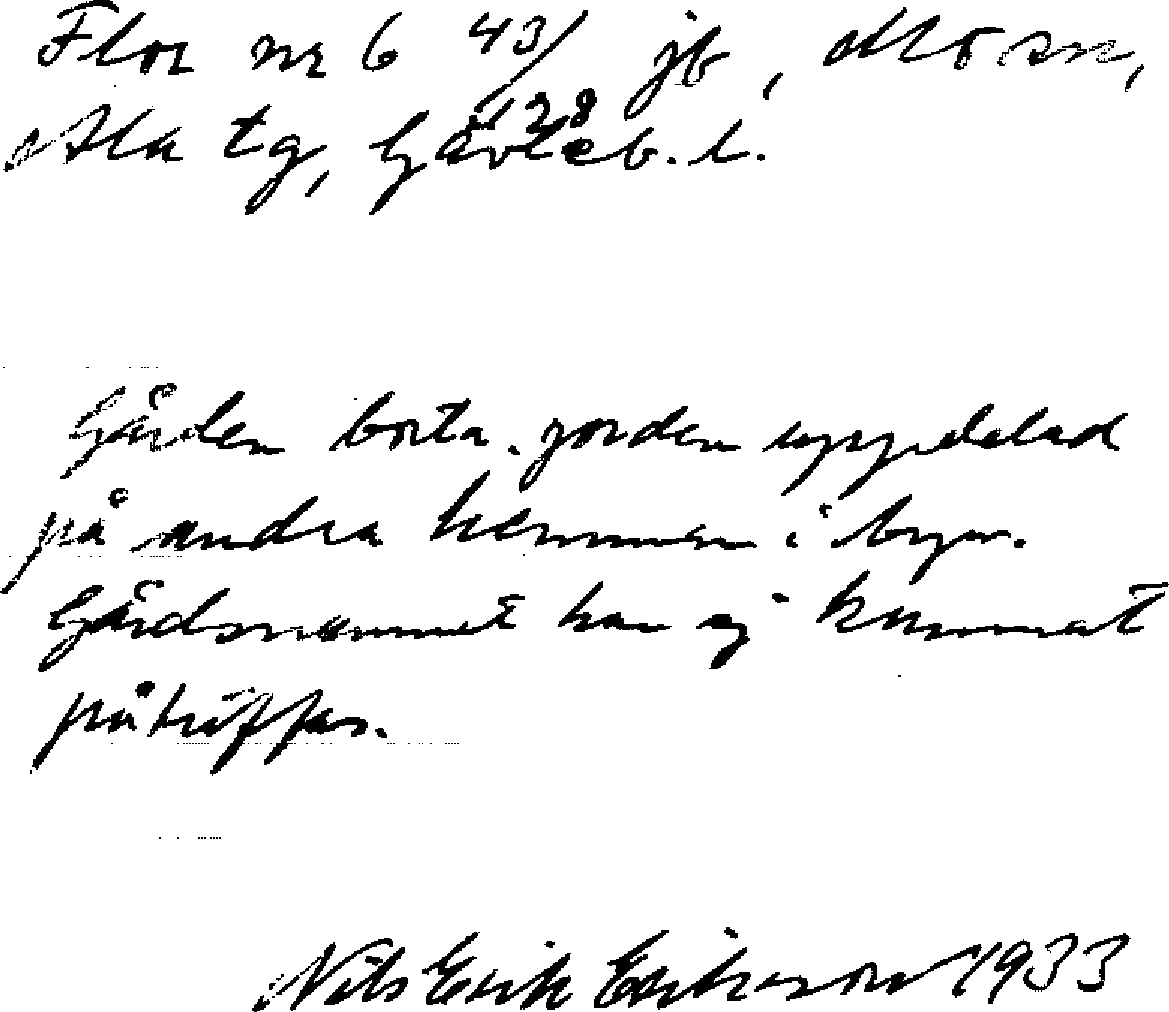 Flor nr 6 43/128 jb, Mo sn,
Ala tg, Gävleb. l.
Gården borta. jorden uppdelad
på andra hemman i byn.
Gårdsnamnet har ej kunnat
påträffas.
Nils Erik Eriksson 1933